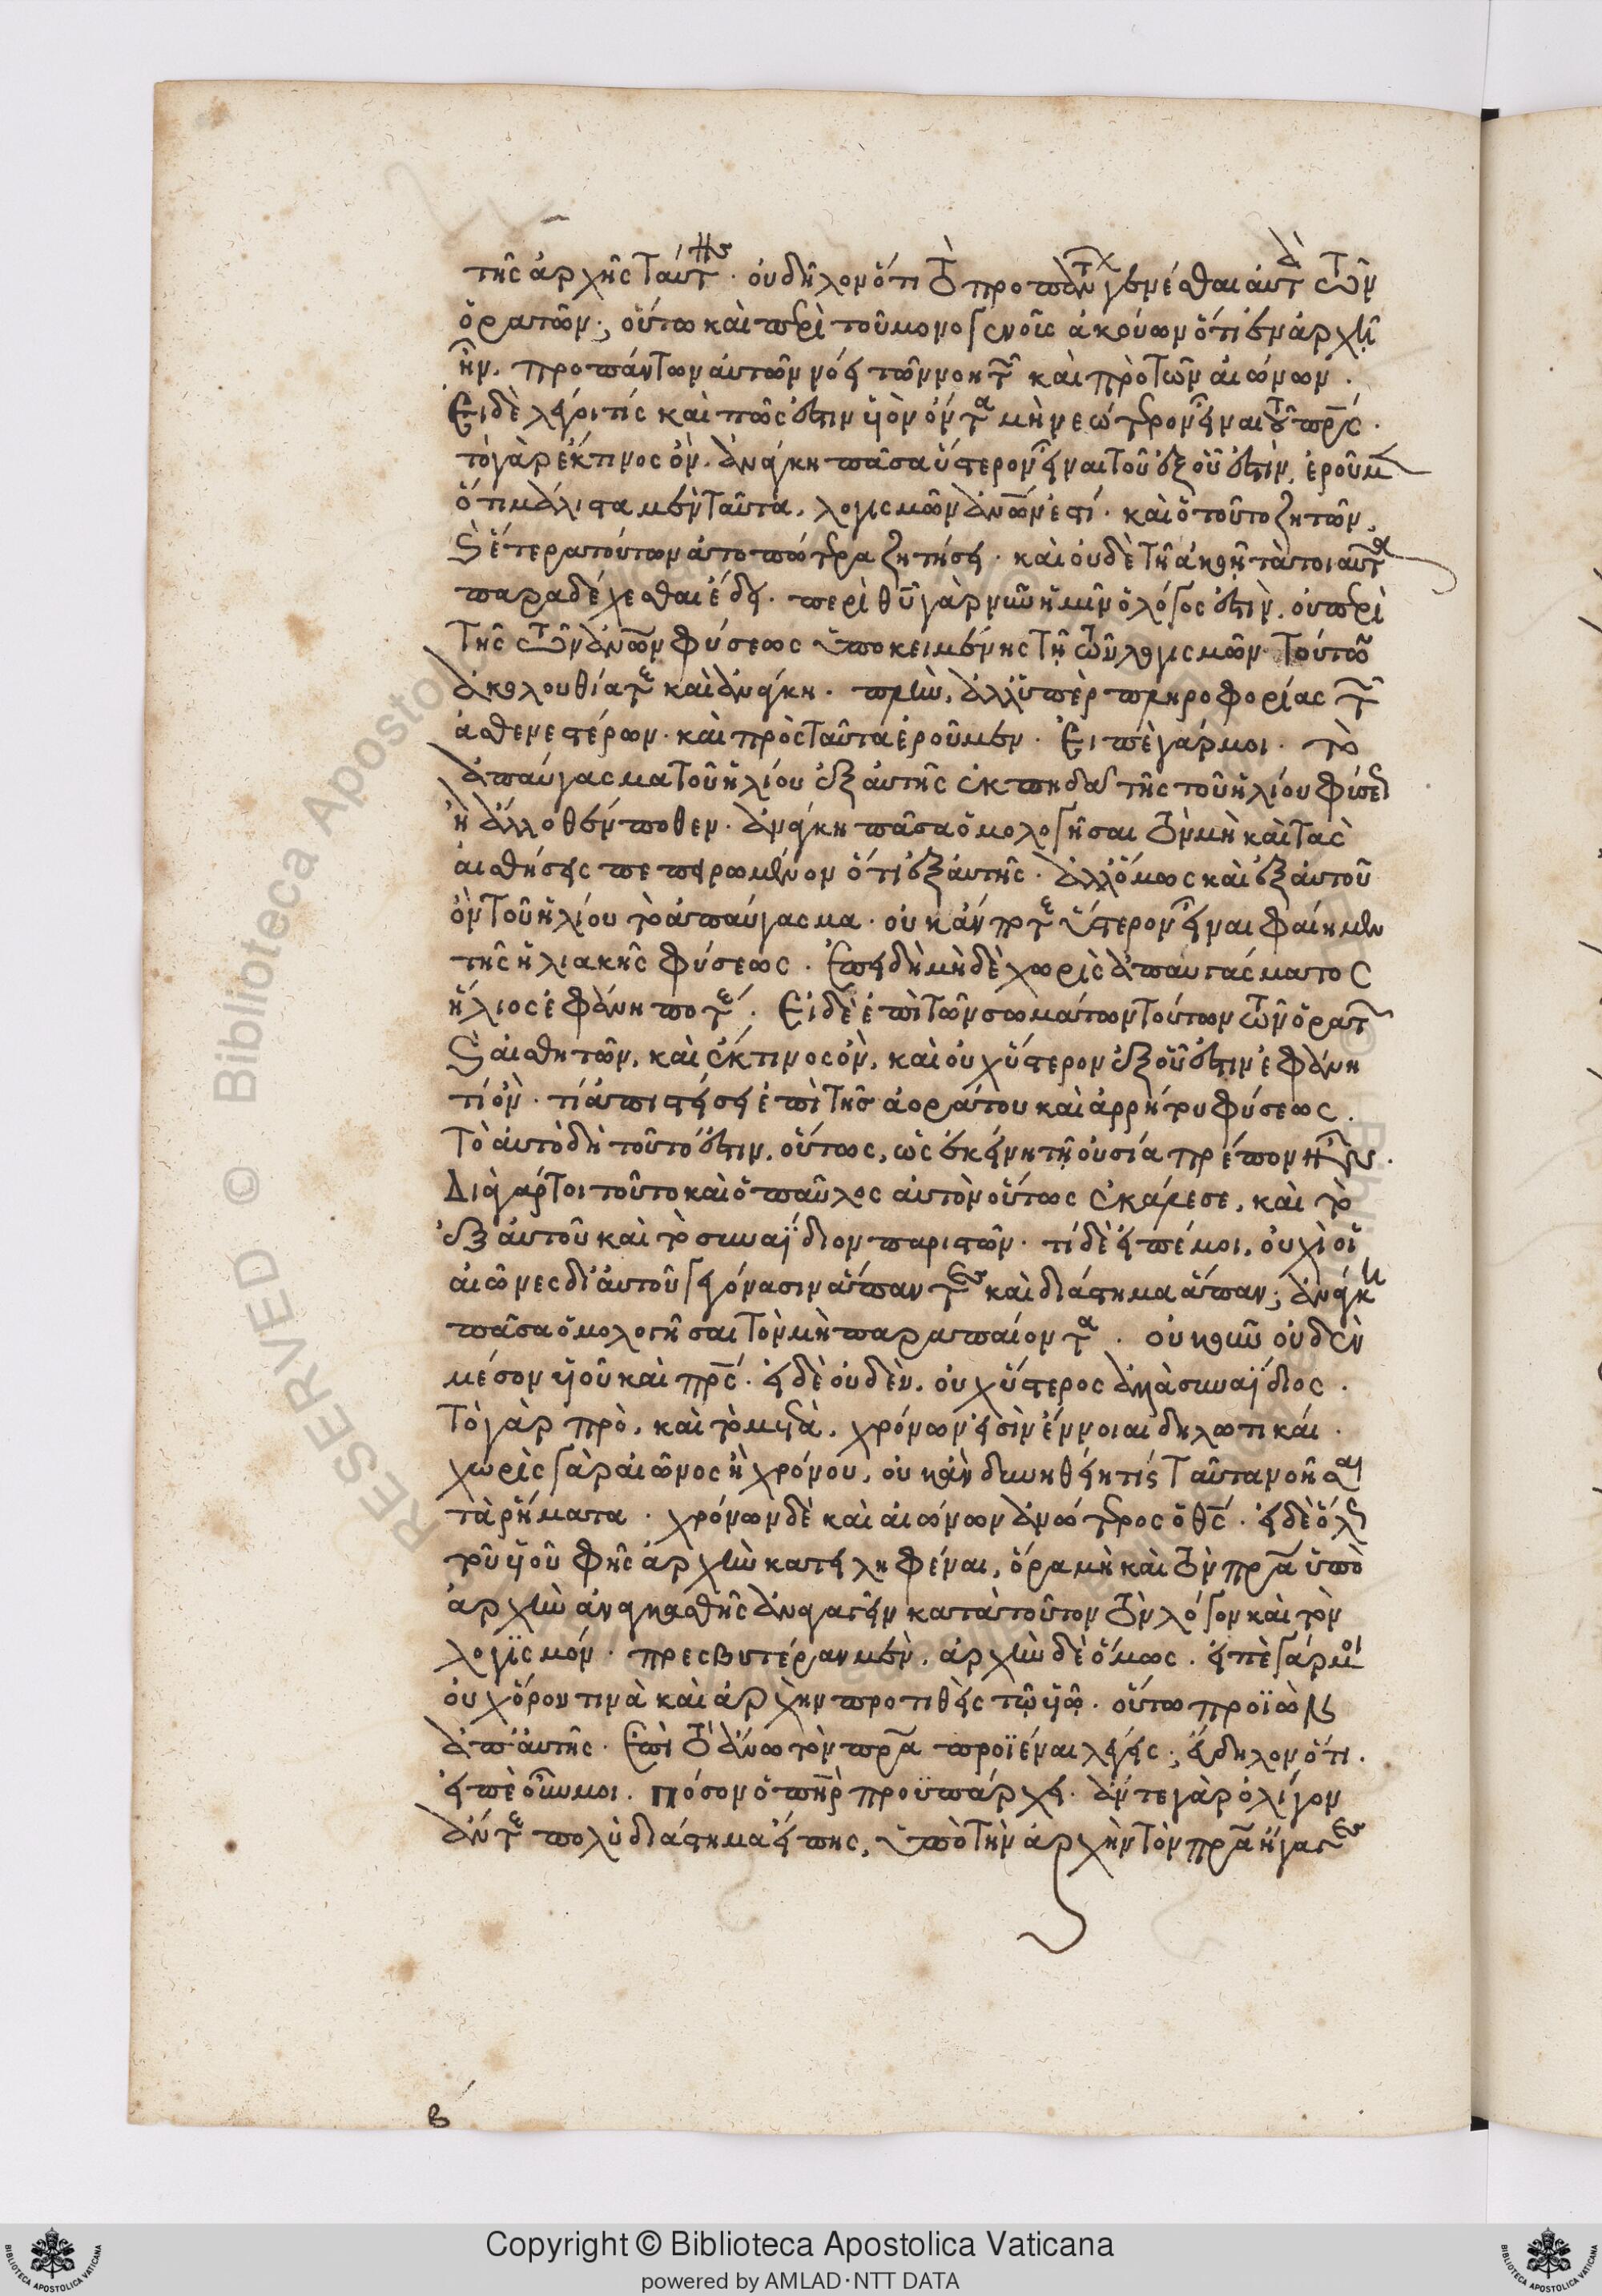 τῆς ἀρχῆς ταύτης. οὐ δῆλον ὅτι τὸ πρὸ πάντων γενέσθαι αὐτὰ τῶν
ὁρατῶν; οὕτω καὶ περὶ τοῦ μονογενοῦς ἀκούων ὅτι ἐν ἀρχῇ
ἦν. προπάντων αὐτῶν νόει τῶν νοητῶν καὶ πρὸ τῶν αἰώνων.
Εἰ δὲ λέγοι τίς καὶ πῶς ἐστιν υἱὸν ὄντα μὴ νεώτερον εἶναι τοῦ πρς.
τὸ γὰρ ἔκ τινος ὂν. ἀνάγκη πᾶσα ὕστερον εἶναι τοῦ ἐξ οὗ ἐστὶν. ἐροῦμεν
ὅτι μάλιστα μὲν ταῦτα. λογισμῶν ἀνων ἐστί. καὶ ὁ τοῦτο ζητῶν.
καὶ ἕτερα τούτων ἀτοπώτερα ζητήσει. καὶ οὐδὲ τῇ ἀκοῇ τὰ τοιαῦτα
παραδέχεσθαι ἔδει. περὶ θυ γὰρ νῦν ἡμῖν ὁ λόγος ἐστὶν. οὐ περὶ
τῆς τῶν ἀνων φύσεως ὑποκειμένης τῇ τῶν λογισμῶν τούτων
ἀκολουθία τε καὶ ἀνάγκη. πλὴν. ἀλλ' ὑπὲρ πληροφορίας τῶν
ἀσθενεστέρων. καὶ πρὸς ταῦτα ἐροῦμεν. Εἰπὲ γάρ μοι. τὸ
ἀπαύγασμα τοῦ ἡλίου ἐξ αὐτῆς ἐκπηδᾶ τῆς τοῦ ἡλίου φύσεως
ἢ ἄλλοθέν ποθεν. ἀνάγκη πᾶσα ὁμολογῆσαι τὸν μὴ καὶ τὰς
αἰσθήσεις πεπηρωμένον ὅτι ἐξ αὐτῆς. ἀλλ' ὅμως καὶ ἐξ αὐτοῦ
ὂν τοῦ ἡλίου τὸ ἀπαύγασμα. οὐκ ἄν ποτε ὕστερον εἶναι φαίημεν
τῆς ἡλιακῆς φύσεως. Ἐπειδὴ μὴ δὲ χωρὶς ἀπαυγάσματος
ἥλιος ἐφάνη ποτέ. Εἰ δὲ ἐπὶ τῶν σωμάτων τούτων τῶν ὁρατῶν
καὶ αἰσθητῶν. καὶ ἔκ τινος ὂν. καὶ οὐχ ὕστερον ἐξ οὗ ἐστιν ἐφάνη
τί ὂν. τί ἀπιστήσῃ ἐπὶ τῆς ἀοράτου καὶ ἀρρήτου φύσεως.
Τὸ αὐτὸ δὴ τοῦτό ἐστιν. οὕτως, ὡς ἐκείνῃ τῇ οὐσία πρέπον ἦν.
Διὰ γάρ τοι τοῦτο καὶ ὁ παῦλος αὐτὸν οὕτως ἐκάλεσε. καὶ τὸ
ἐξ αὐτοῦ καὶ τὸ συναΐδιον παριστῶν. τί δὲ εἰπέ μοι. οὐχὶ οἱ
αἰῶνες δι' αὐτοῦ γεγόνασιν ἅπαντες καὶ διάστημα ἅπαν; ἀνάγκη
πᾶσα ὁμολογῆσαι τὸν μὴ παραπαίοντα. οὐκοῦν οὐδὲν
μέσον υἱοῦ καὶ πρς. εἰ δὲ οὐδὲν. οὐχ ὕστερος ἀλλὰ συναΐδιος.
Τὸ γὰρ πρὸ. καὶ τὸ μετὰ. χρόνων εἰσὶν ἔννοιαι δηλωτικαί.
χωρὶς γὰρ αἰῶνος ἢ χρόνου. οὐκ ἂν δυνηθείη τίς ταῦτα νοῆσαι
τὰ ῥήματα. χρόνων δὲ καὶ αἰώνων ἀνώτερος ὁ θς. εἰ δὲ ὅλως
τοῦ υἱοῦ φῂς ἀρχὴν κατειληφέναι, ὅρα μὴ καὶ τὸν πρα ὑπὸ
ἀρχὴν ἀναγκασθῇς ἀναγαγεῖν κατὰ τοῦτον τὸν λόγον καὶ τὸν
λογισμόν. πρεσβυτέραν μὲν. ἀρχὴν δὲ ὅμως. εἰπὲ γάρ μοι
οὐχ ὅρον τινὰ καὶ ἀρχὴν προτιθεὶς τῷ υἱῷ. οὕτω προϊὼν
ἀπ' αὐτῆς. Ἐπὶ τὸ ἄνω τὸν πρα προϊέναι λέγεις; εὔδηλον ὅτι.
εἰπὲ οὖν μοι. πόσον ὁ πηρ προϋπάρχει. ἄν τε γὰρ ὀλίγον
ἄν τε πολὺ διάστημα εἴπῃς, ὑπὸ τὴν ἀρχὴν τὸν πρα ἤγαγες
β
RESERVED © Biblioteca Apostolica
Copyright © Biblioteca Apostolica Vaticana
powered by AMLAD·NTT DATA
BIBLIOTECA APOSTOLICA VATICANA
BIBLIOTECA APOSTOLICA VATICANA